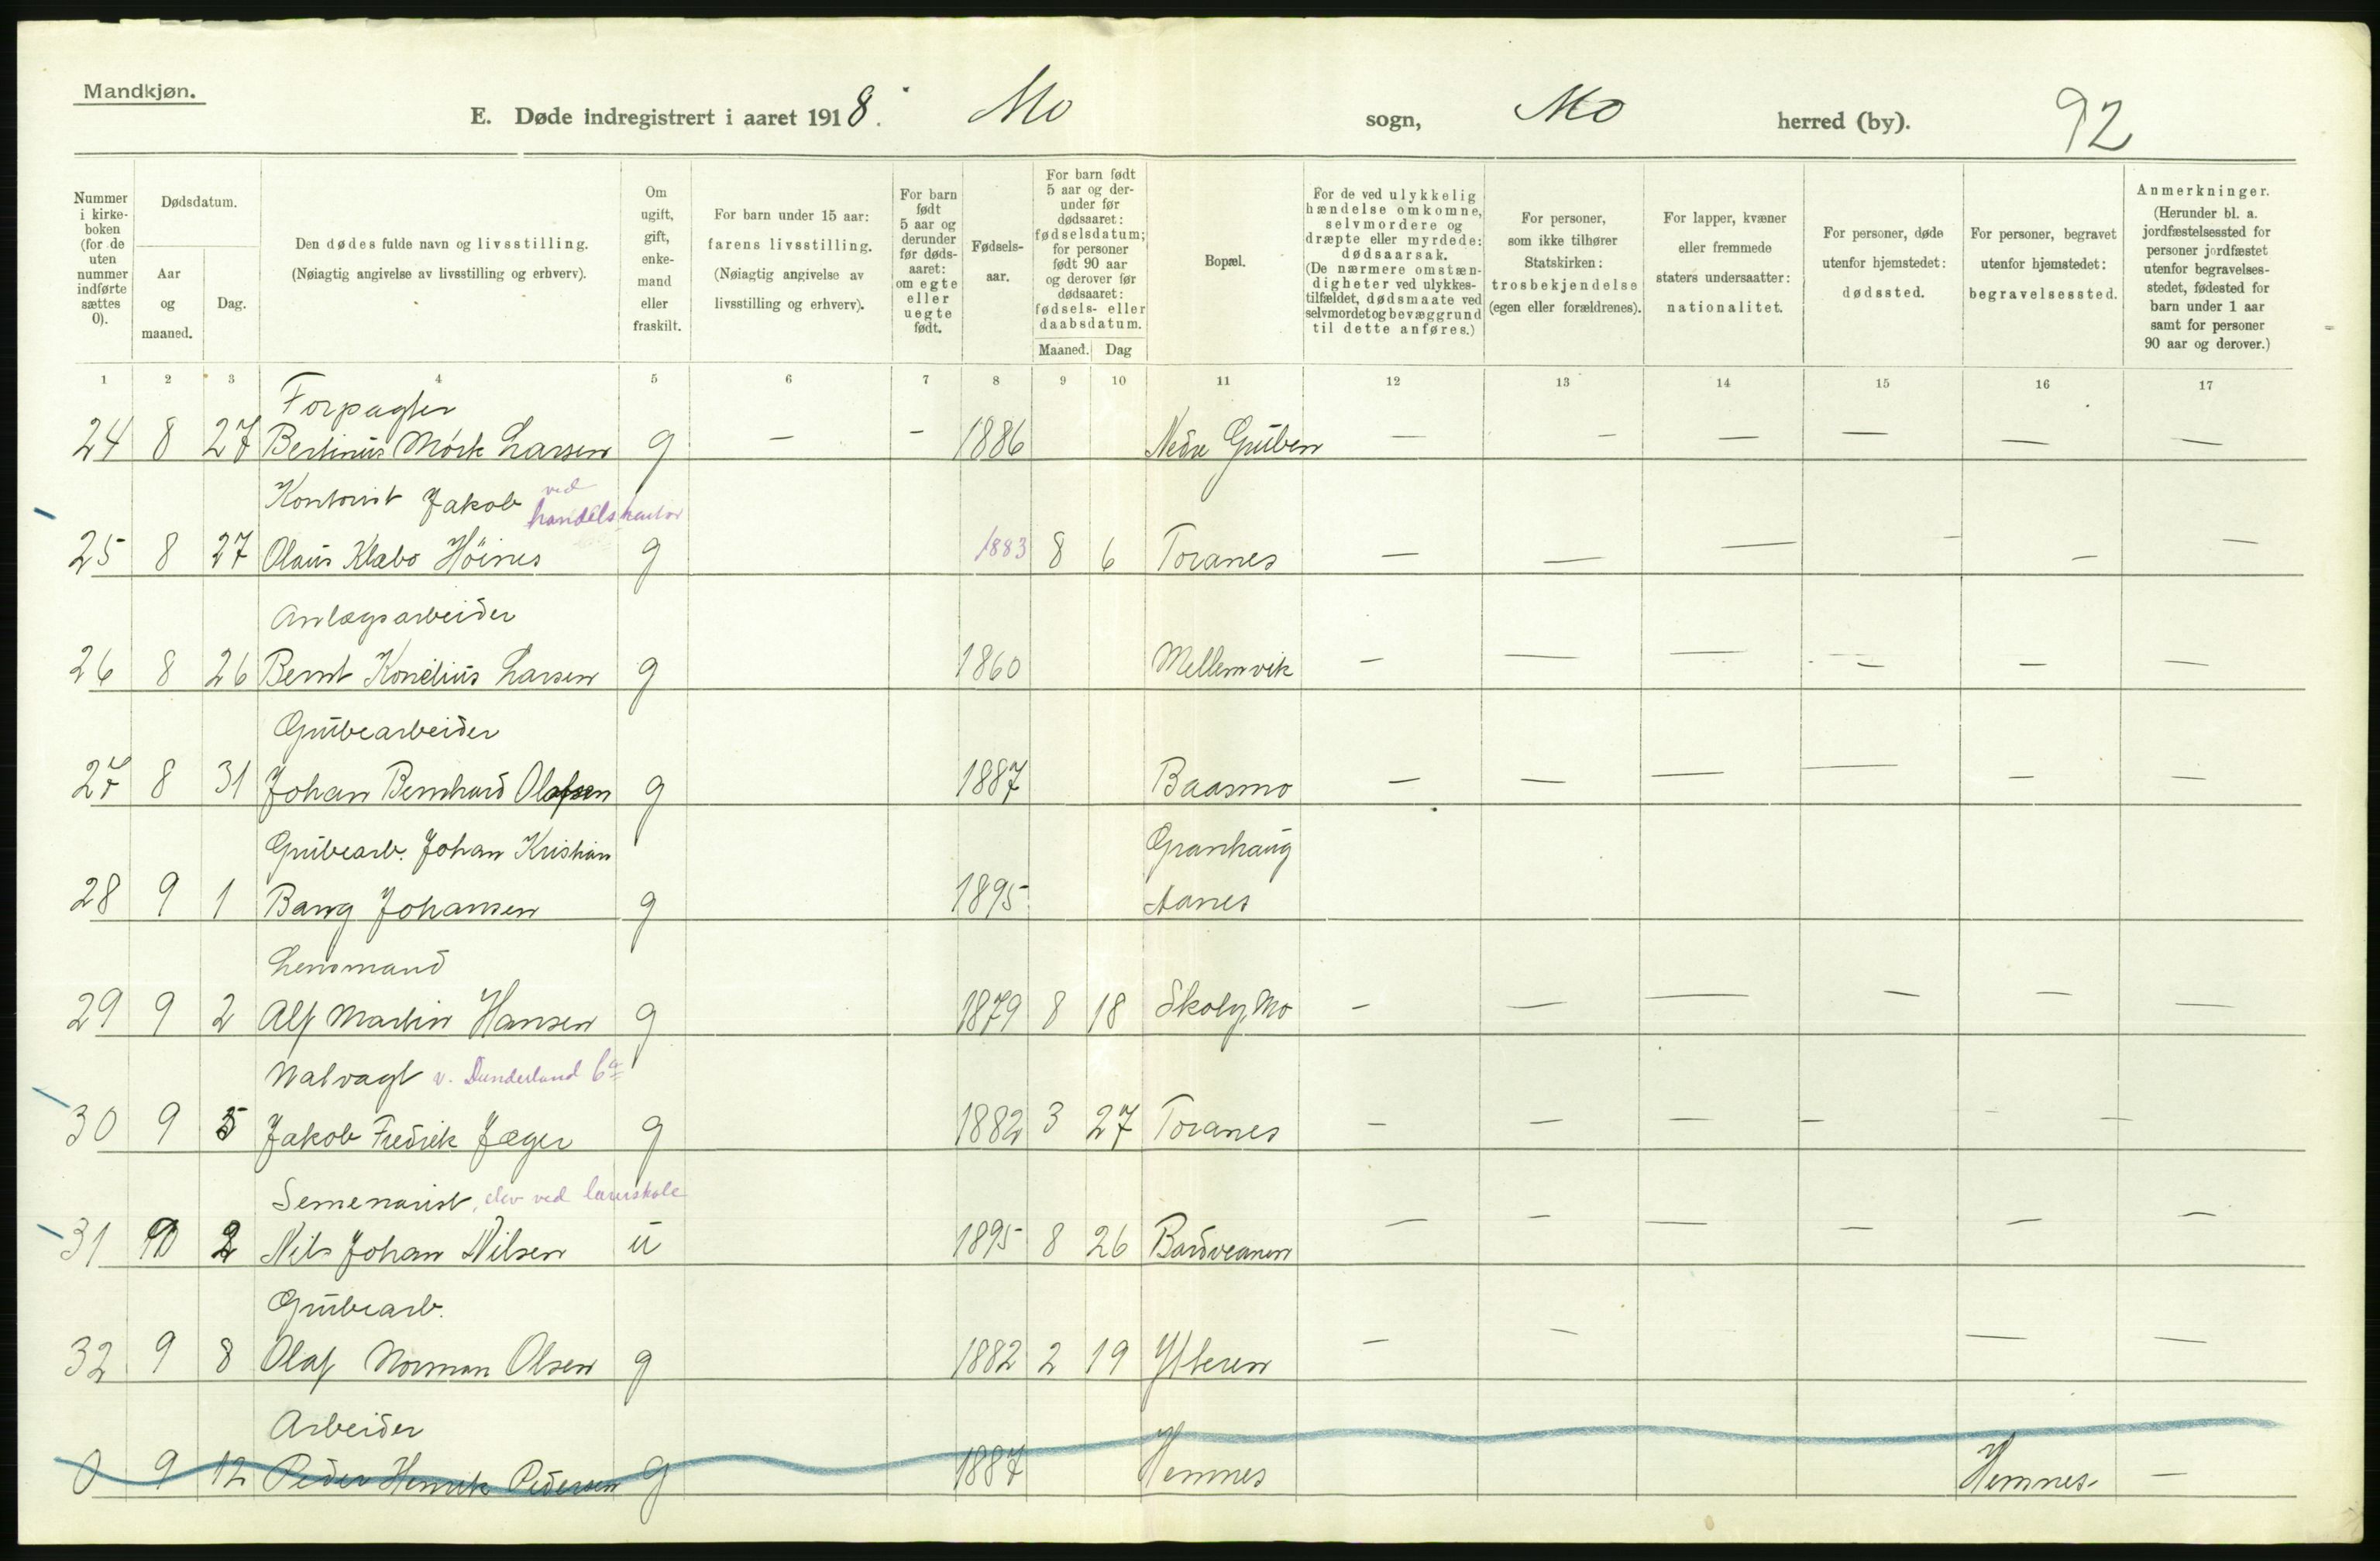 Mandkjøn.
E. Døde indregistrert i aaret 1918. Mo sogn, Mo herred (by). 92
Nummer i kirke-boken (for de uten nummer indførte sættes 0).
Dødsdatum.
Aar og maaned.
Dag.
Den dødes fulde navn og livsstilling.
(Nøiagtig angivelse av livsstilling og erhverv).
Om ugift, gift, enke-mand eller fraskilt.
For barn under 15 aar: farens livsstilling.
(Nøiagtig angivelse av livsstilling og erhverv).
For barn født 5 aar og derunder før døds-aaret: om egte eller uegte født.
Fødsels-aar.
For barn født 5 aar og der-under før dødsaaret: fødselsdatum; for personer født 90 aar og derover før dødsaaret: fødsels- eller daabsdatum.
Maaned. Dag
Bopæl.
For de ved ulykkelig hændelse omkomne, selvmordere og dræpte eller myrdede: dødsaarsak.
(De nærmere omstæn-digheter ved ulykkes-tilfældet, dødsmaate ved selvmordet og bevæggrund til dette anføres.)
For personer, som ikke tilhører Statskirken: trosbekjendelse (egen eller forældrenes).
For lapper, kvæner eller fremmede staters undersaatter: nationalitet.
For personer, døde utenfor hjemstedet: dødssted.
For personer, begravet utenfor hjemstedet: begravelsessted.
Anmerkninger.
(Herunder bl. a. jordfæstelsessted for personer jordfæstet utenfor begravelses-stedet, fødested for barn under 1 aar samt for personer 90 aar og derover.)
1 2 3 4 5 6 7 8 9 10 11 12 13 14 15 16 17
Forpagter
24 8 27 Bertinus Mörk Larsen g — — 1886 Nedre Gruben — — — — — —
Kontorist Jakob ved handelskontor
25 8 27 Olaus Klæbo Höines g 1883 8 6 Toranes — — — — — —
Anlægsarbeider
26 8 26 Bernt Konelius Larsen g 1860 Mellemvik — — — — — —
Grubearbeider
27 8 31 Johan Bernhard Olafsen g 1887 Baasmo — — — — — —
Grubearb. Johan Kristian Granhaug
28 9 1 Bang Johansen g 1895 Aanes
Lensmand
29 9 2 Alf Martin Hansen g 1879 8 18 Skolg. Mo — — — — — —
Malvagt v. Dunderland Co
30 9 5 Jakob Fredrik Jæger g 1882 3 27 Toranes — — — — — —
Semenarist, elev ved lærerskole
31 2 Nils Johan Nilsen u 1895 8 26 — — — — — —
Grubearb.
32 9 8 Olaf Norman Olsen g 1882 2 19 Ytteren — — — —
Arbeider
0 9 12 Peder Henrik Pedersen g 1887 Hemnes Hemnes —